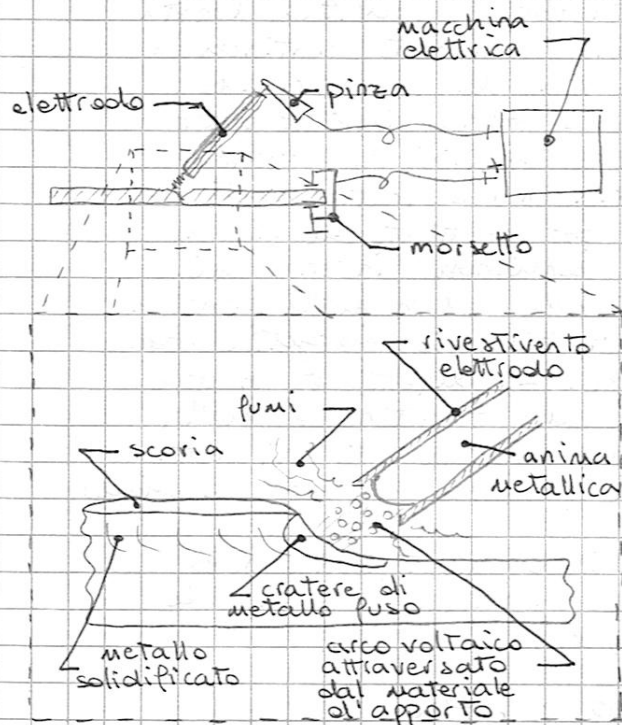 macchina
elettrica
elettrodo
pinza
+
morsetto
rivestivento
elettrodo
fumi
scoria
anima
metallica
cratere di
metallo fuso
metallo
solidificato
arco voltaico
attraversato
dal materiale
d'apporto